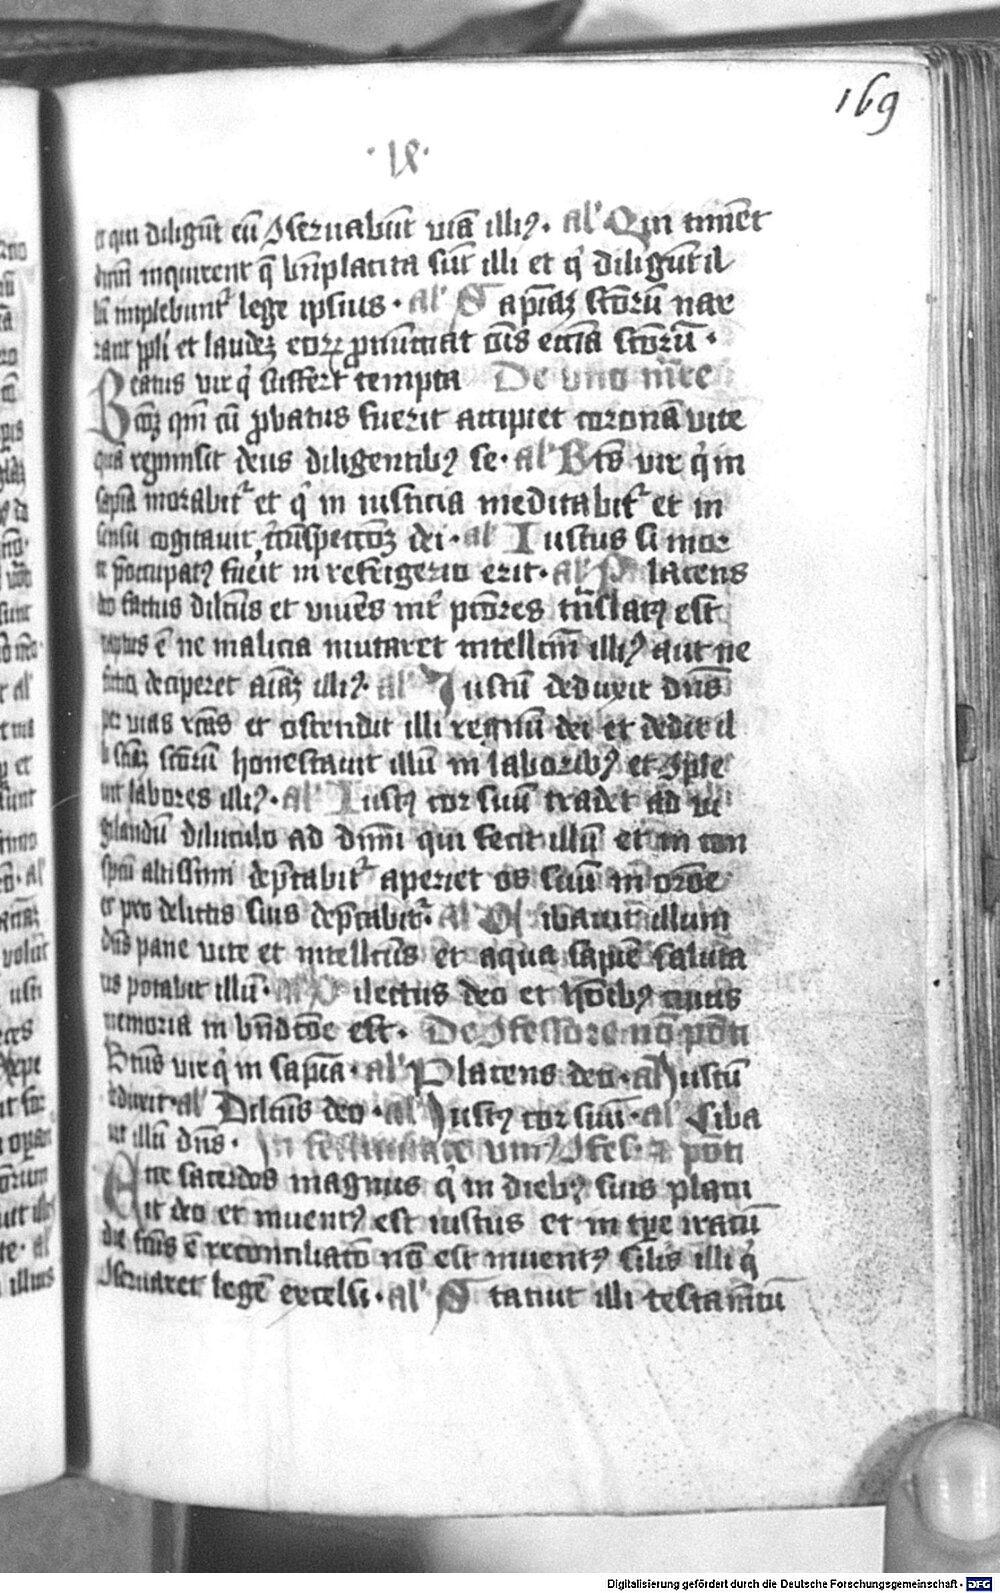 169
·IX·
et qui diligūt eū ꝯseruabūt viā illiꝰ. al' Qui timēt
dnm̄ inquirent q̄ bn̄placita sūt illi et q̇ diligūt il
lū implebunt᷑ lege ipsius. al' Sapīaꝫ scōrū nar
rant ppl'i et laudeꝫ eoꝝ ꝓnūciat oīs eccīa scōrū.
Beatus vir q̇ suffert tempta De vno mr̄e
cōꝫ qm̄ cū ꝓbatus fuerit accipiet coronā vite
quā repmisit deus diligentibꝰ se. al' Bt̄s vir q̇ in
sapīa morabit᷑ et q̇ in iusticia meditabit᷑ et in
sensu cogitauit cōspectōꝫ dei. al' Iustus si mor
te p̄occupatꝰ fūeit in refrigerio erit. al' Placens
do factus dilcūs et viuēs int᷑ pctōres tn̄slatꝰ est
raptus ē ne malicia mutaret intellcm̄ illiꝰ aut ne
fictio deciperet aīaꝫ illiꝰ. al' Iustū deduxit dn̄s
per vias rcās et ostendit illi regnū dei et dedit il
li scīaꝫ scōrū honestauit illū in laboribꝰ et ꝯple
uit labores illiꝰ. al' Iustꝰ cor suū tradet ad vi
gilandū diluculo ad dnm̄ qui fecit illū et in con
spcū altissimi dep̄cabit᷑ aperiet os suū in orōe
et pro delictis suis dep̄cabit᷑. al' Cibauit illum
dn̄s pane vite et intellcūs et aqua sapīe saluta
ris potabit illū. al' Dilectus deo et hōibꝰ cuius
memoria in bn̄dcōe est. De ꝯfessore nō pōti
Btūs vir q̇ in sapīa. al' Placens deo. al' Iustū
deduxit. al' Dilcūs deo. al' Iustꝰ cor suū. al' Ciba
uit illū dn̄s. In festiuitate vniꝰ ꝯfes. ⁊ pōti
Ecce sacerdos magnus q̇ in diebꝰ suis placu
it deo et inuentꝰ est iustus et in tp̄e iracū
die fcūs ē reconciliatō nō est inuentꝰ silis illi q̇
ꝯseruaret legē excelsi. al' Statuit illi testam̄tū
Digitalisierung gefördert durch die Deutsche Forschungsgemeinschaft - DFG